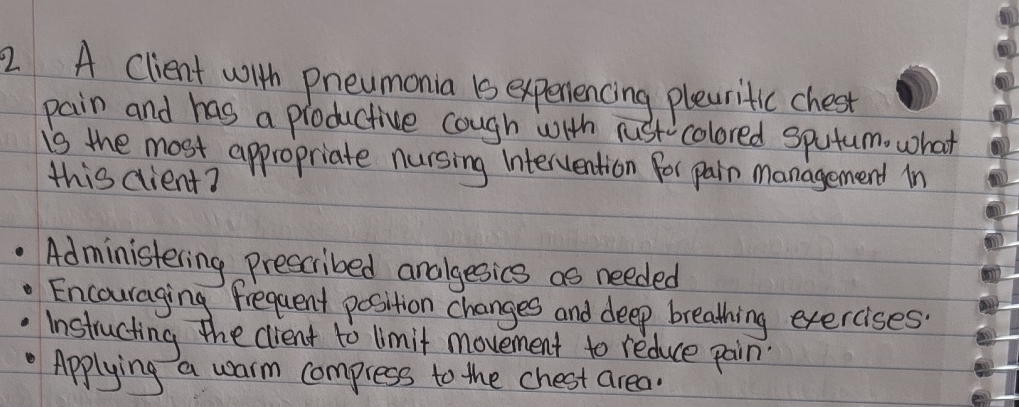 2 A Client with pneumonia is experiencing pleuritic chest
pain and has a productive cough with rust-colored sputum. what
is the most appropriate nursing intervention for pain management in
this client?
• Administering prescribed analgesics as needed
• Encouraging frequent position changes and deep breathing exercises.
• Instructing the client to limit movement to reduce pain.
• Applying a warm compress to the chest area.